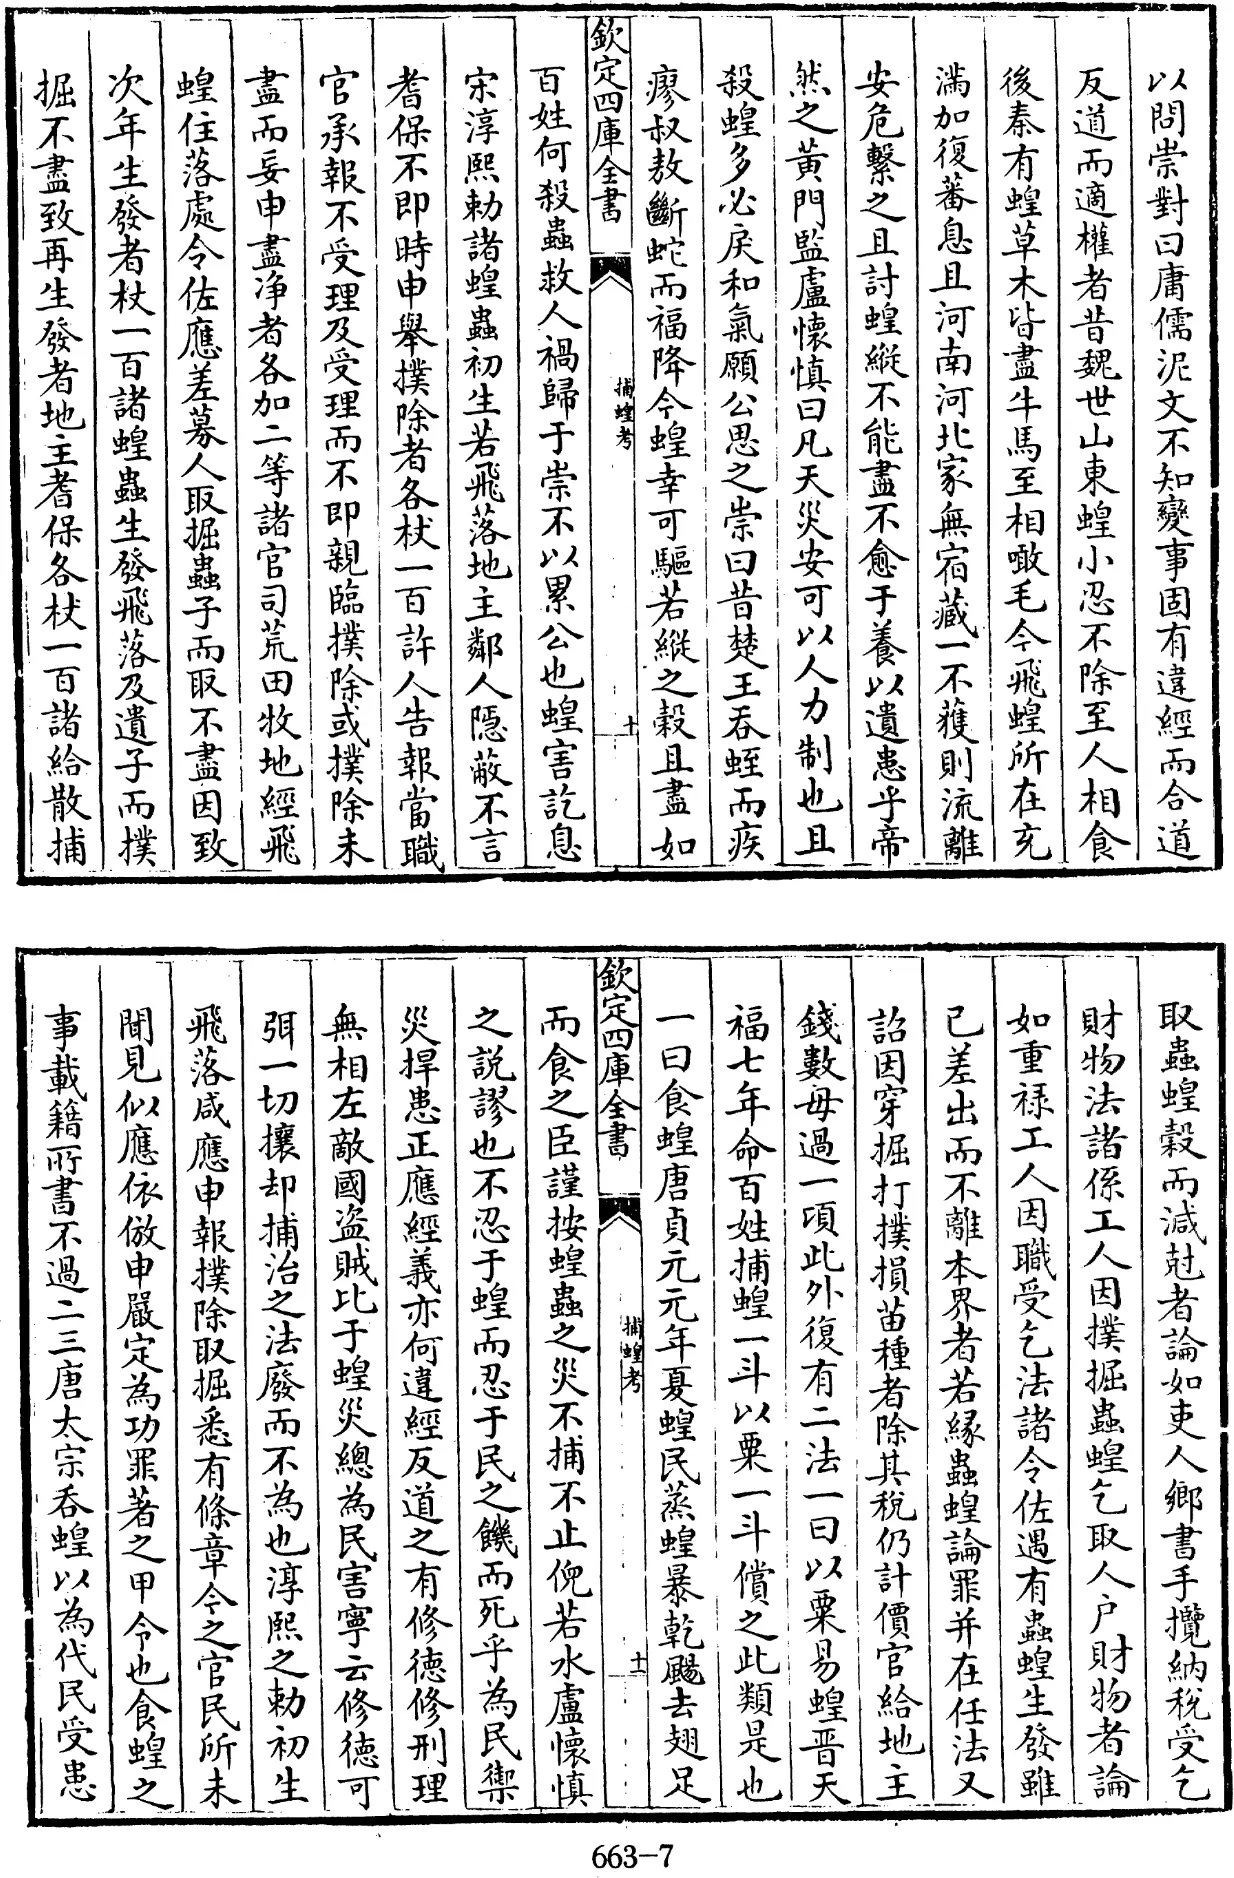 以問崇對曰庸儒泥文不知變事固有違經而合道
反道而適權者昔魏世山東蝗小忍不除至人相食
後秦有蝗草木皆盡牛馬至相噉毛今飛蝗所在充
滿加復蕃息且河南河北家無宿藏一不獲則流離
安危繫之且討蝗縱不能盡不愈于養以遺患乎帝
然之黄門監盧懷慎曰凡天災安可以人力制也且
殺蝗多必戾和氣願公思之崇曰昔楚王吞蛭而疾
瘳叔敖斷蛇而福降今蝗幸可驅若縱之穀且盡如
欽定四庫全書
捕蝗考
十
百姓何殺蟲救人禍歸于崇不以累公也蝗害訖息
宋淳熙勅諸蝗蟲初生若飛落地主鄰人隠蔽不言
耆保不即時申舉撲除者各杖一百許人告報當職
官承報不受理及受理而不即親臨撲除或撲除未
盡而妄申盡净者各加二等諸官司荒田牧地經飛
蝗住落處令佐應差募人取掘蟲子而取不盡因致
次年生發者杖一百諸蝗蟲生發飛落及遺子而撲
掘不盡致再生發者地主耆保各杖一百諸給散捕
取蟲蝗穀而減尅者論如吏人鄉書手攬納稅受乞
財物法諸係工人因撲掘蟲蝗乞取人户財物者論
如重禄工人因職受乞法諸令佐遇有蟲蝗生發雖
已差出而不離本界者若縁蟲蝗論罪并在任法又
詔因穿掘打撲損苗種者除其稅仍計價官給地主
錢數毋過一頃此外復有二法一曰以粟易蝗晋天
福七年命百姓捕蝗一斗以粟一斗償之此類是也
一曰食蝗唐貞元元年夏蝗民蒸蝗暴乾颺去翅足
欽定四庫全書
捕蝗考
十一
而食之臣謹按蝗蟲之災不捕不止倪若水盧懷慎
之説謬也不忍于蝗而忍于民之饑而死乎為民禦
災捍患正應經義亦何違經反道之有修德修刑理
無相左敵國盜賊比于蝗災總為民害寧云修德可
弭一切攘却捕治之法廢而不為也淳熙之勅初生
飛落咸應申報撲除取掘悉有條章今之官民所未
聞見似應依倣申嚴定為功罪著之甲令也食蝗之
事載籍所書不過二三唐太宗吞蝗以為代民受患
663-7